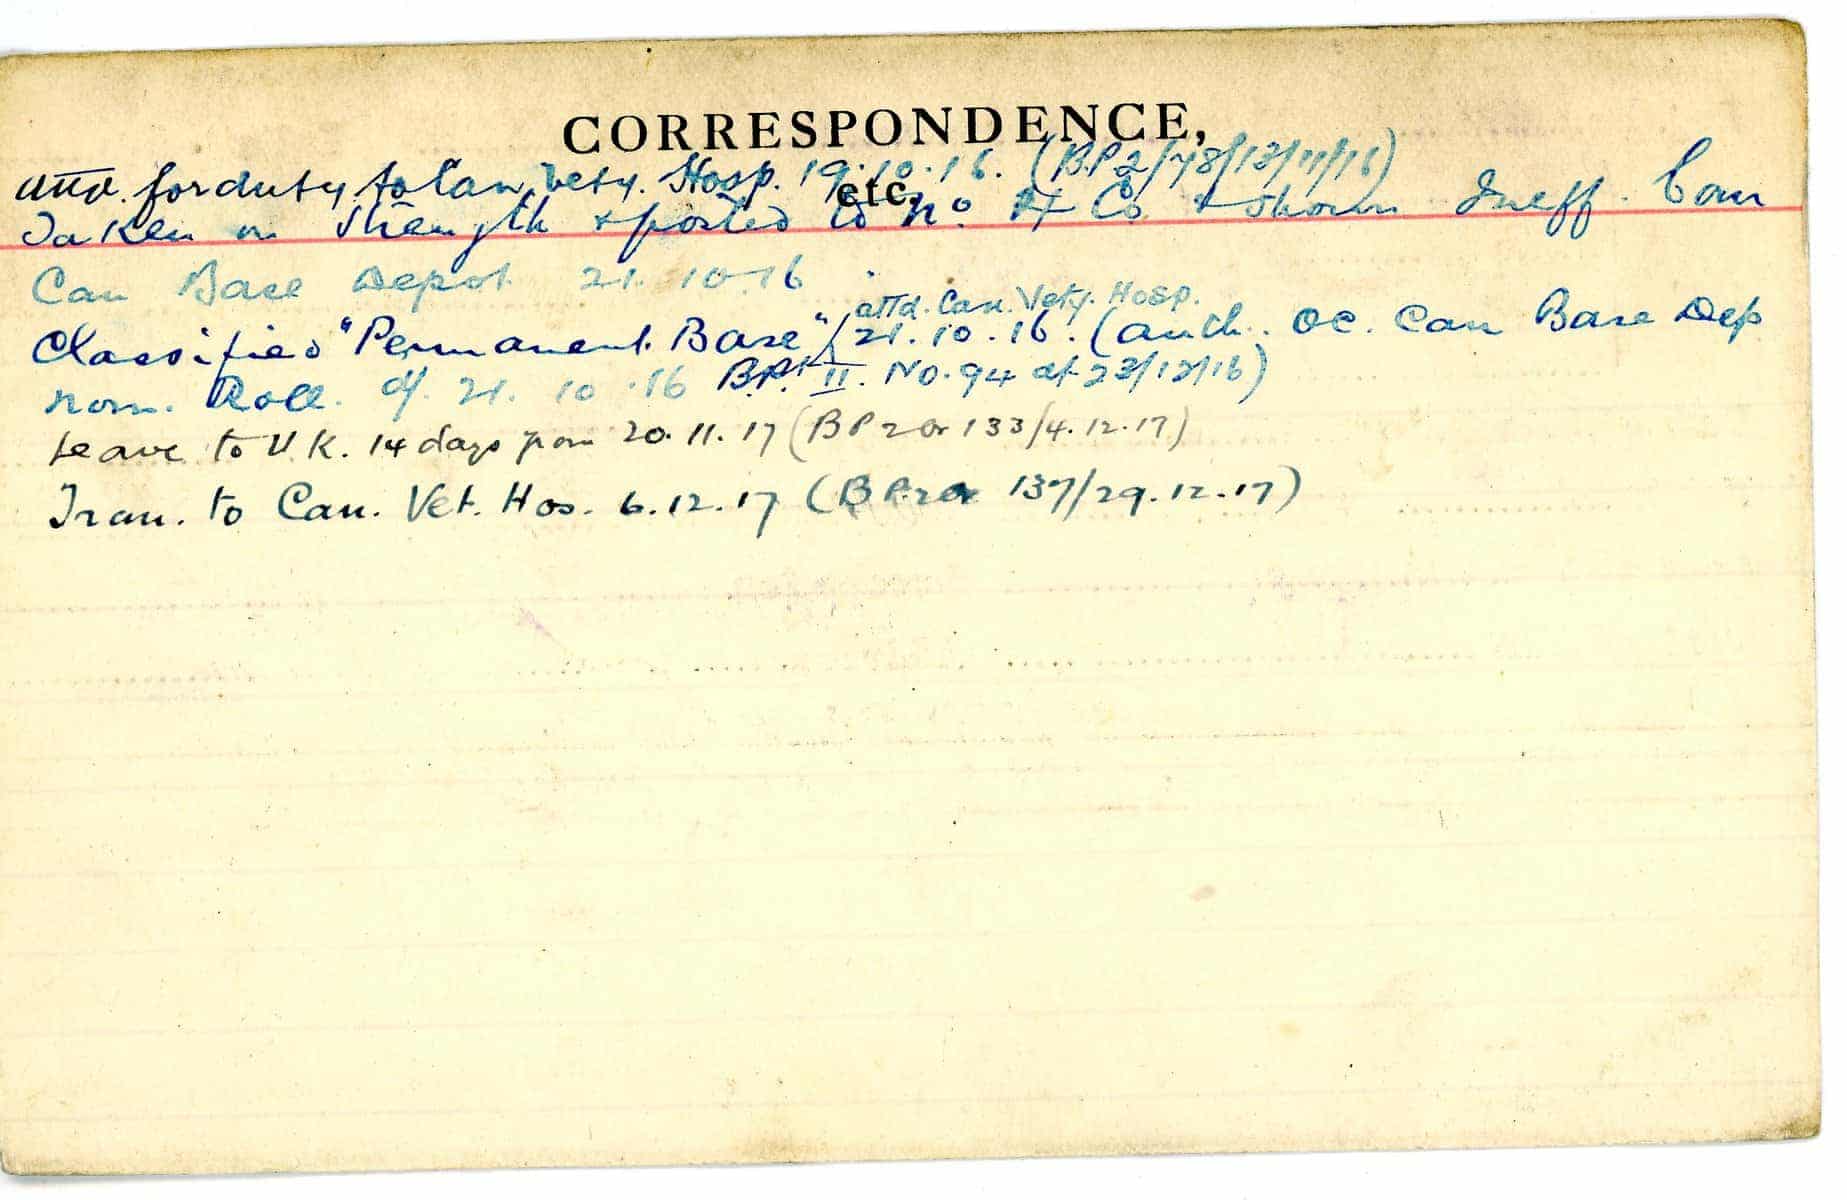 CORRESPONDENCE,
attd. for duty to Can Vety. Hosp. 19.10.16. (BP2/78/13/11/16)
etc.
Taken on Strength & posted to No. Co & shown Ineff. Com
Can Base Depot 21.10.16
attd. Can. Vety. Hosp.
Classified "Permanent Base" 21.10.16. (auth. OC. Can Base Dep
nom. Roll. d/. 21.10.16 BPt II. No. 94 dt 23/12/16)
Leave to U.K. 14 days from 20.11.17 (BP2or 133/4.12.17)
Tran. to Can. Vet. Hos. 6.12.17 (BP2or 137/29.12.17)